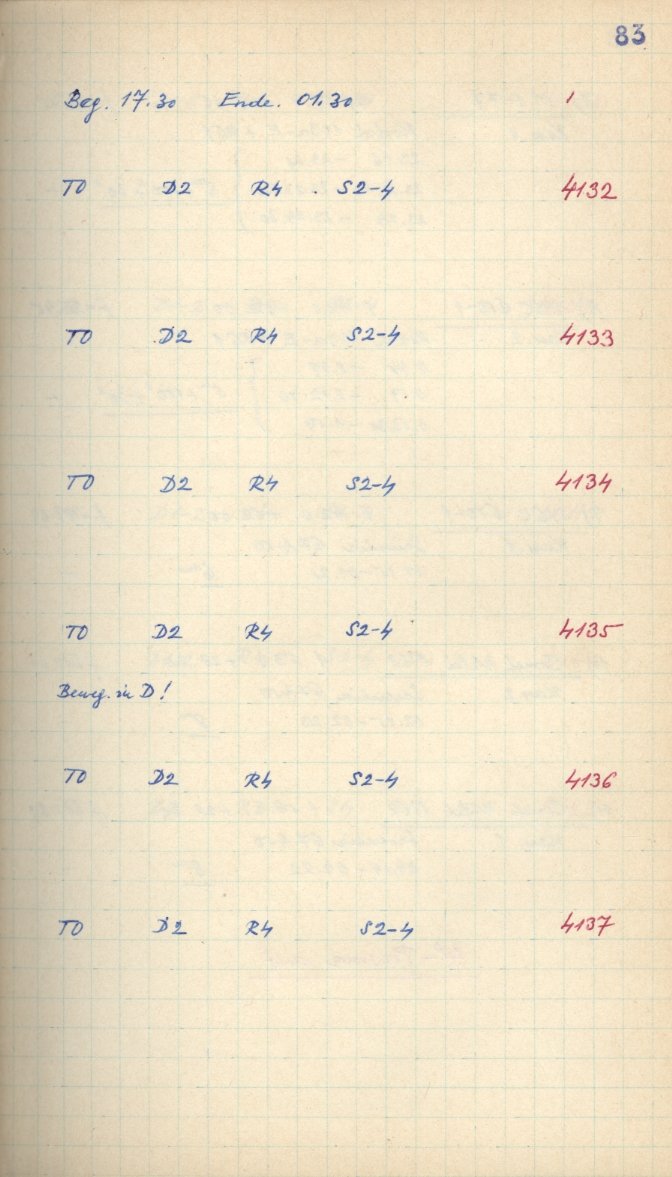 83
Beg. 17.30 Ende. 01.30 1
T0 D2 R4 . S2-4 4132
T0 D2 R4 S2-4 4133
T0 D2 R4 S2-4 4134
T0 D2 R4 S2-4 4135
Beweg. in D!
T0 D2 R4 S2-4 4136
T0 D2 R4 S2-4 4137